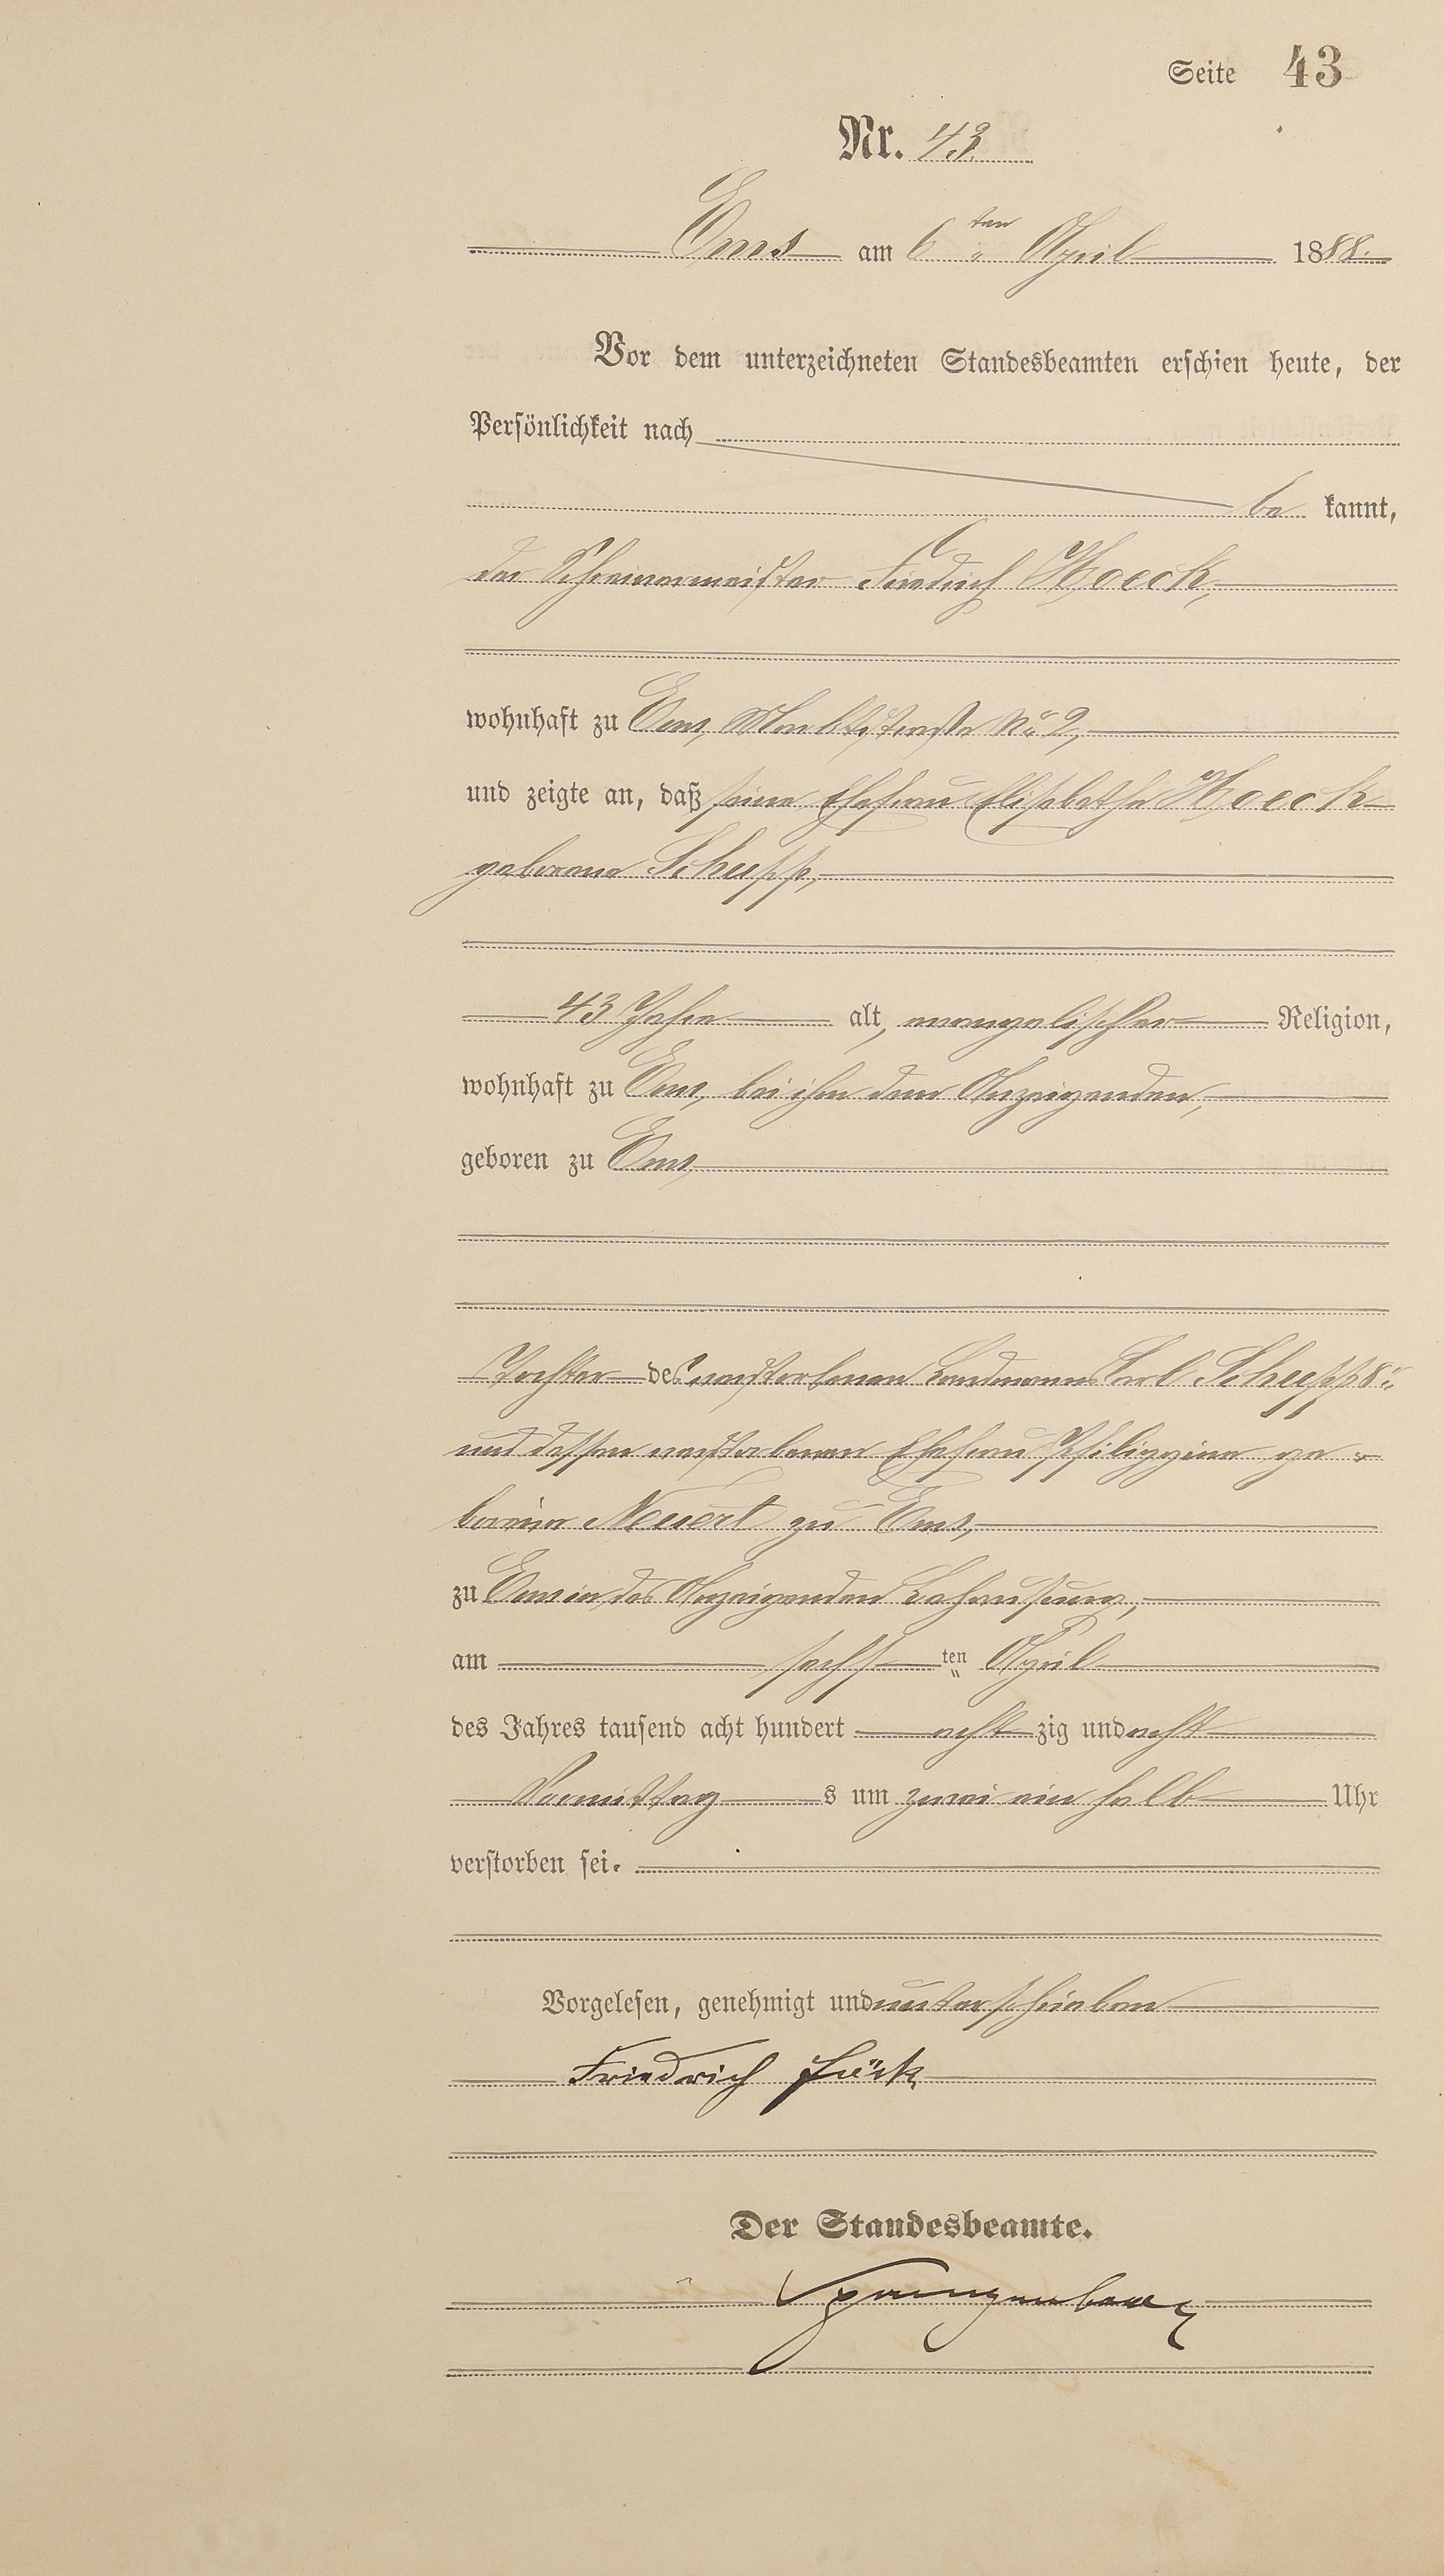 Seite 43
Nr. 43.
Ems am 6 ten April 1888.
Vor dem unterzeichneten Standesbeamten erschien heute, der
Persönlichkeit nach
be kannt,
der Schreinermeister Friedrich Hoeck,
wohnhaft zu Ems, Marktstraße No 2,
und zeigte an, daß seine Ehefrau Elisabetha Hoeck
geborene Schupp,
43 Jahre alt, evangelischer Religion,
wohnhaft zu Ems, bei ihm dem Anzeigenden,
geboren zu Ems,
Tochter des verstorbenen Landmanns Carl Schupp 8.
und dessen verstorbenen Ehefrau Philippine ge-
borene Neuert zu Ems,
zu Ems in des Anzeigenden Behausung,
am sechsten April
des Jahres tausend acht hundert acht zig und acht
Vormittags um zwei ein halb Uhr
verstorben sei.
Vorgelesen, genehmigt und unterschrieben
Friedrich Höck
Der Standesbeamte.